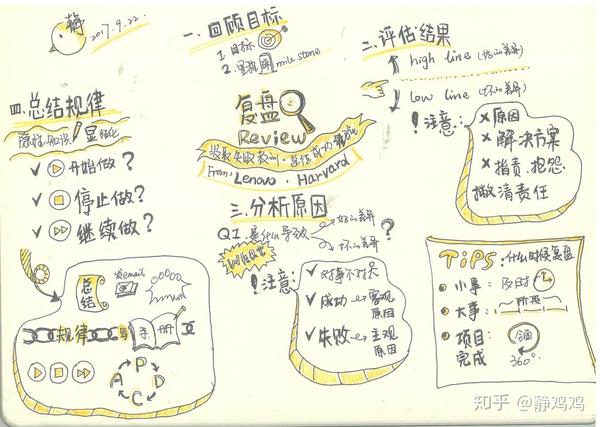 静
2017.9.22.
一.回顾目标
1.目标
2.里程碑 mile stone
二.评估结果
high line (好的差异)
low line (不好的差异)
!注意:
×原因
×解决方案
×指责.抱怨
撇清责任
复盘
Review
汲取失败教训·总结成功
From: Lenovo · Harvard
三.分析原因
Q1.是什么导致
好的差异
不好的差异
?
!注意:
✓对事不对人
✓成功→客观原因
✓失败→主观原因
四.总结规律
隐性知识 显性化
✓开始做?
✓停止做?
✓继续做?
总结
发email
规律
手册
P
A D
C
TiPS:什么时候复盘
小事:及时
大事:阶段
项目完成
全面
360°
知乎 @静鸡鸡